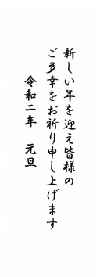 新しい年を迎え皆様の
ご多幸をお祈り申し上げます
令和二年　元旦